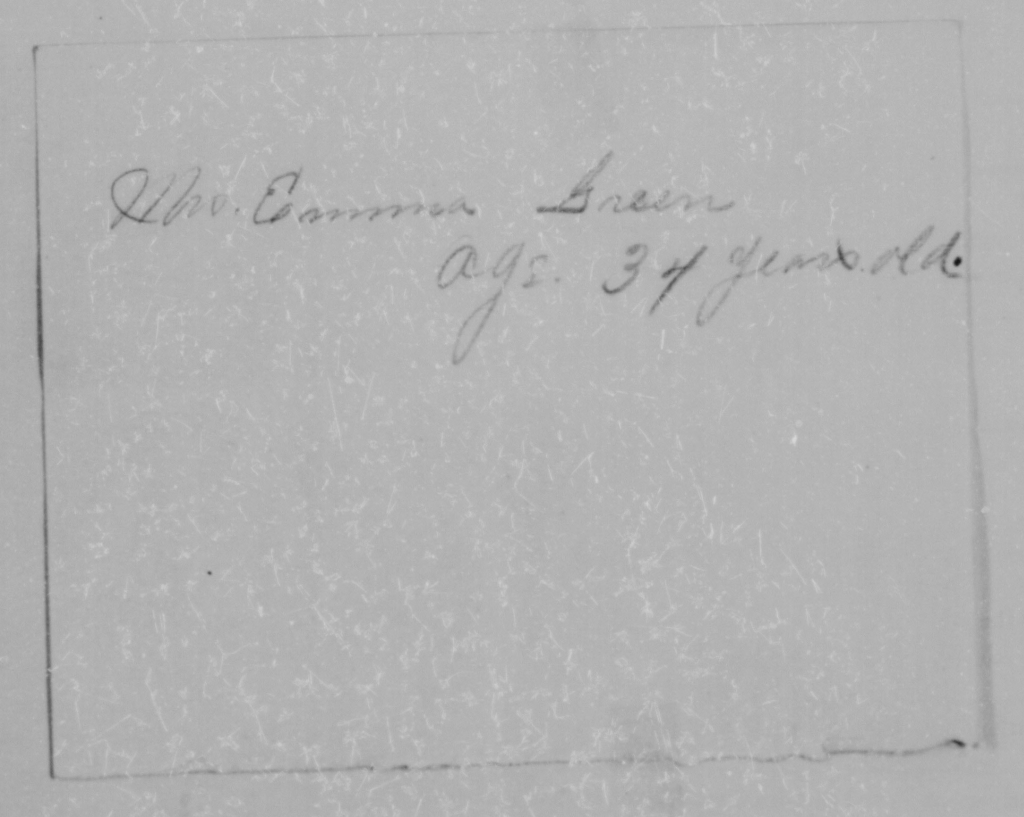 Mrs. Emma Green
Age. 34 years old.